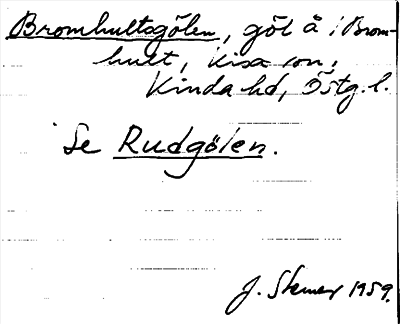 Bromhultsgölen, göl å 1 Brom-
hult, Kisa sn,
Kinda hd, Östg. l.
Se Rudgölen.
J. 1959.